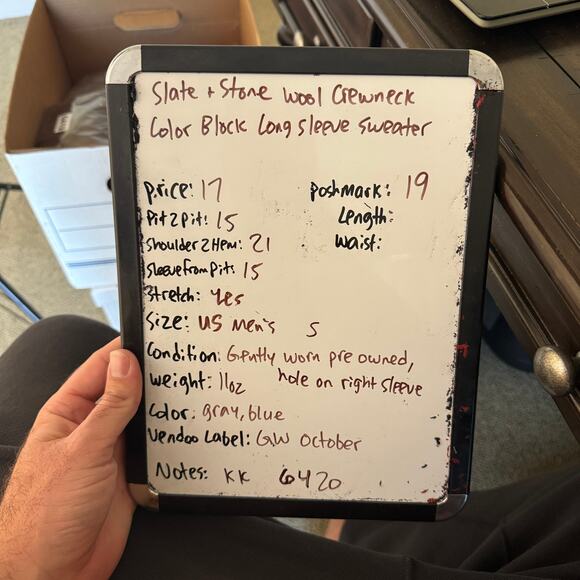 Slate + Stone Wool Crewneck
Color Block Long Sleeve Sweater
Price: 17 Poshmark: 19
Pit2Pit: 15 Length:
Shoulder2Hem: 21 Waist:
Sleeve from Pit: 15
Stretch: Yes
Size: US Men's S
Condition: Gently worn pre owned,
hole on right sleeve
Weight: 11oz
Color: gray, blue
Vendoo Label: GW October
Notes: KK 6420